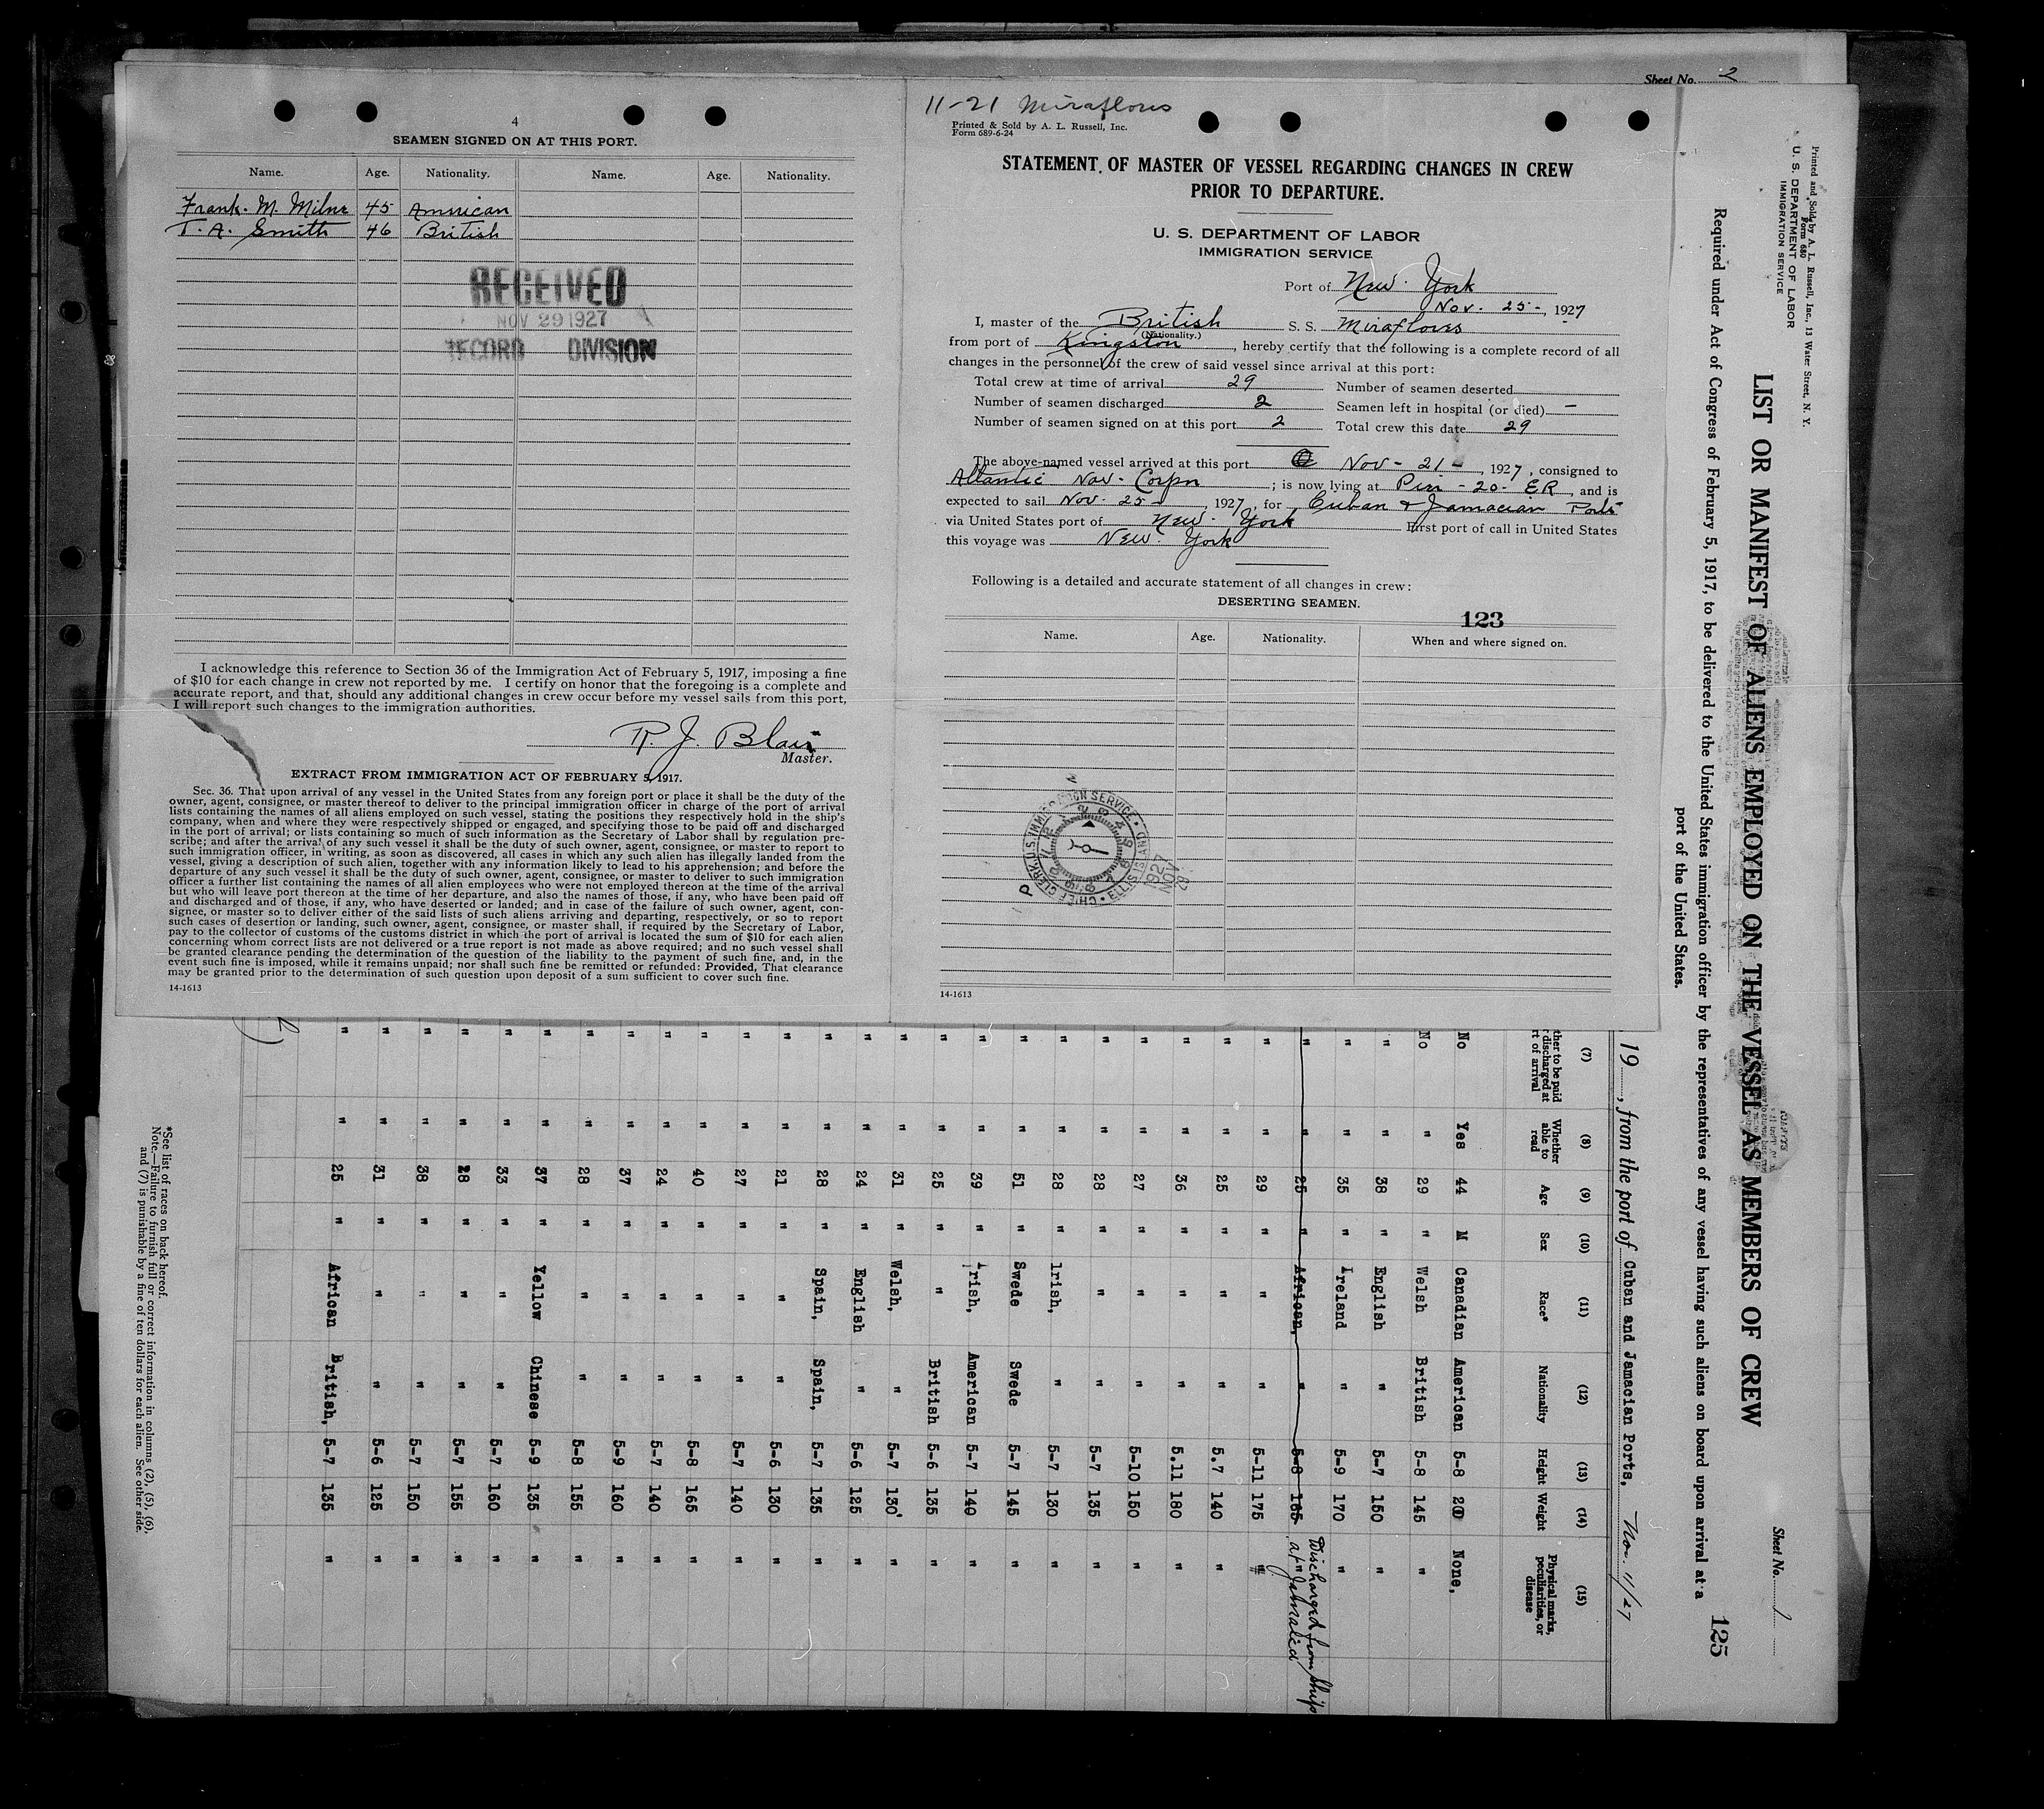 4
SEAMEN SIGNED ON AT THIS PORT.
Name. Age. Nationality. Name. Age. Nationality.
Frank. M. Milne 45 American
T. A. Smith 46 British
RECEIVED
NOV 29 1927
RECORD DIVISION
I acknowledge this reference to Section 36 of the Immigration Act of February 5, 1917, imposing a fine
of $10 for each change in crew not reported by me. I certify on honor that the foregoing is a complete and
accurate report, and that, should any additional changes in crew occur before my vessel sails from this port,
I will report such changes to the immigration authorities.
R. J. Blair
Master.
EXTRACT FROM IMMIGRATION ACT OF FEBRUARY 5, 1917.
Sec. 36. That upon arrival of any vessel in the United States from any foreign port or place it shall be the duty of the
owner, agent, consignee, or master thereof to deliver to the principal immigration officer in charge of the port of arrival
lists containing the names of all aliens employed on such vessel, stating the positions they respectively hold in the ship's
company, when and where they were respectively shipped or engaged, and specifying those to be paid off and discharged
in the port of arrival; or lists containing so much of such information as the Secretary of Labor shall by regulation pre-
scribe; and after the arrival of any such vessel it shall be the duty of such owner, agent, consignee, or master to report to
such immigration officer, in writing, as soon as discovered, all cases in which any such alien has illegally landed from the
vessel, giving a description of such alien, together with any information likely to lead to his apprehension; and before the
departure of any such vessel it shall be the duty of such owner, agent, consignee, or master to deliver to such immigration
officer a further list containing the names of all alien employees who were not employed thereon at the time of the arrival
but who will leave port thereon at the time of her departure, and also the names of those, if any, who have been paid off
and discharged and of those, if any, who have deserted or landed; and in case of the failure of such owner, agent, con-
signee, or master so to deliver either of the said lists of such aliens arriving and departing, respectively, or so to report
such cases of desertion or landing, such owner, agent, consignee, or master shall, if required by the Secretary of Labor,
pay to the collector of customs of the customs district in which the port of arrival is located the sum of $10 for each alien
concerning whom correct lists are not delivered or a true report is not made as above required; and no such vessel shall
be granted clearance pending the determination of the question of the liability to the payment of such fine, and, in the
event such fine is imposed, while it remains unpaid; nor shall such fine be remitted or refunded: Provided, That clearance
may be granted prior to the determination of such question upon deposit of a sum sufficient to cover such fine.
14-1613
11-21 Miraflores
Printed & Sold by A. L. Russell, Inc.
Form 689-6-24
STATEMENT OF MASTER OF VESSEL REGARDING CHANGES IN CREW
PRIOR TO DEPARTURE.
U. S. DEPARTMENT OF LABOR
IMMIGRATION SERVICE
Port of New York
Nov. 25-, 1927
I, master of the British S. S. Miraflores
(Nationality.)
from port of Kingston, hereby certify that the following is a complete record of all
changes in the personnel of the crew of said vessel since arrival at this port:
Total crew at time of arrival 29 Number of seamen deserted
Number of seamen discharged 2 Seamen left in hospital (or died) -
Number of seamen signed on at this port 2 Total crew this date 29
The above-named vessel arrived at this port Nov- 21-, 1927, consigned to
Atlantic Nav. Corpn; is now lying at Pier -20- ER, and is
expected to sail Nov. 25-, 1927, for Cuban & Jamacian Ports
via United States port of New York First port of call in United States
this voyage was New York
Following is a detailed and accurate statement of all changes in crew:
DESERTING SEAMEN.
123
Name. Age. Nationality. When and where signed on.
CHIEF CLERK, U.S. IMMIGRATION SERVICE • ELLIS ISLAND •
1927 NOV 29
14-1613
Sheet No. 2
Printed and Sold by A. L. Russell, Inc., 13 Water Street, N. Y.
Form 680
U. S. DEPARTMENT OF LABOR
IMMIGRATION SERVICE
Sheet No. 1
LIST OR MANIFEST OF ALIENS EMPLOYED ON THE VESSEL AS MEMBERS OF CREW
125
Required under Act of Congress of February 5, 1917, to be delivered to the United States immigration officer by the representatives of any vessel having such aliens on board upon arrival at a
port of the United States.
19 , from the port of Cuban and Jamacian Ports, Nov. 11/27
(7) (8) (9) (10) (11) (12) (13) (14) (15)
ther to be paid discharged at rt of arrival Whether able to read Age Sex Race* Nationality Height Weight Physical marks, peculiarities, or disease
No Yes 44 M Canadian American 5-8 None,
No " 29 " Welsh British 5-8 145 "
" " 38 " English " 5-7 150 "
" " 35 " Ireland " 5-9 170 "
" " 25 " African, " 5-8 165 Discharged from ship at
" " 29 " " " 5-11 175 "
" " 25 " " " 5.7 140 "
" " 36 " " " 5.11 180 "
" " 27 " " " 5-10 150 "
" " 28 " " " 5-7 135 "
" " 28 " Irish, " 5-7 130 "
" " 51 " Swede Swede 5-7 145 "
" " 39 " Irish, American 5-7 140 "
" " 25 " " British 5-6 135 "
" " 31 " Welsh, " 5-7 130 "
" " 24 " English " 5-6 125 "
" " 28 " Spain, Spain, 5-7 135 "
" " 21 " " " 5-6 130 "
" " 27 " " " 5-7 140 "
" " 40 " " " 5-8 165 "
" " 24 " " " 5-7 140 "
" " 37 " " " 5-9 160 "
" " 28 " " " 5-8 155 "
" " 37 " Yellow Chinese 5-9 135 "
" " 33 " " " 5-7 160 "
" " 28 " " " 5-7 155 "
" " 38 " " " 5-7 150 "
" " 31 " " " 5-6 125 "
" " 25 " African British, 5-7 135 "
*See list of races on back hereof.
Note.—Failure to furnish full or correct information in columns (2), (5), (6),
and (7) is punishable by a fine of ten dollars for each alien. See other side.